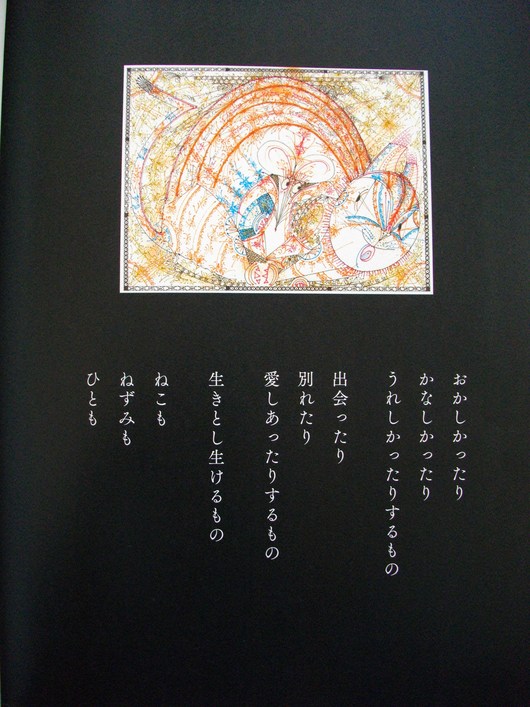 おかしかったり
かなしかったり
うれしかったりするもの
出会ったり
別れたり
愛しあったりするもの
生きとし生けるもの
ねこも
ねずみも
ひとも